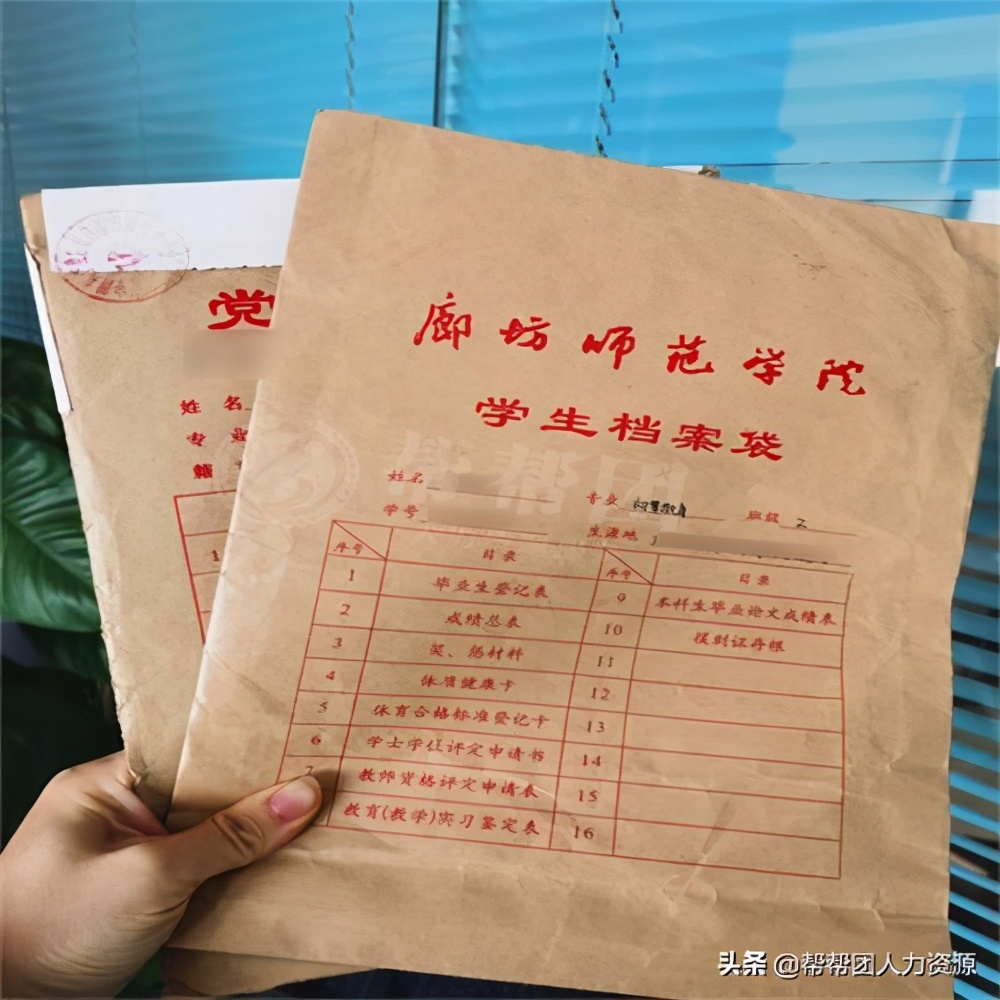 党
姓 名
专 业
籍
1
廊坊师范学院
学生档案袋
帮帮团
姓名 专业 班级 2
学号 生源地
序号 目录 序号 目录
1 毕业生登记表 9 本科生毕业论文成绩表
2 成绩总表 10 提到证存根
3 奖、惩材料 11
4 体质健康卡 12
5 体育合格标准登记卡 13
6 学士学位评定申请书 14
7 教师资格评定申请表 15
教育(教学)实习鉴定表 16
头条 @帮帮团人力资源